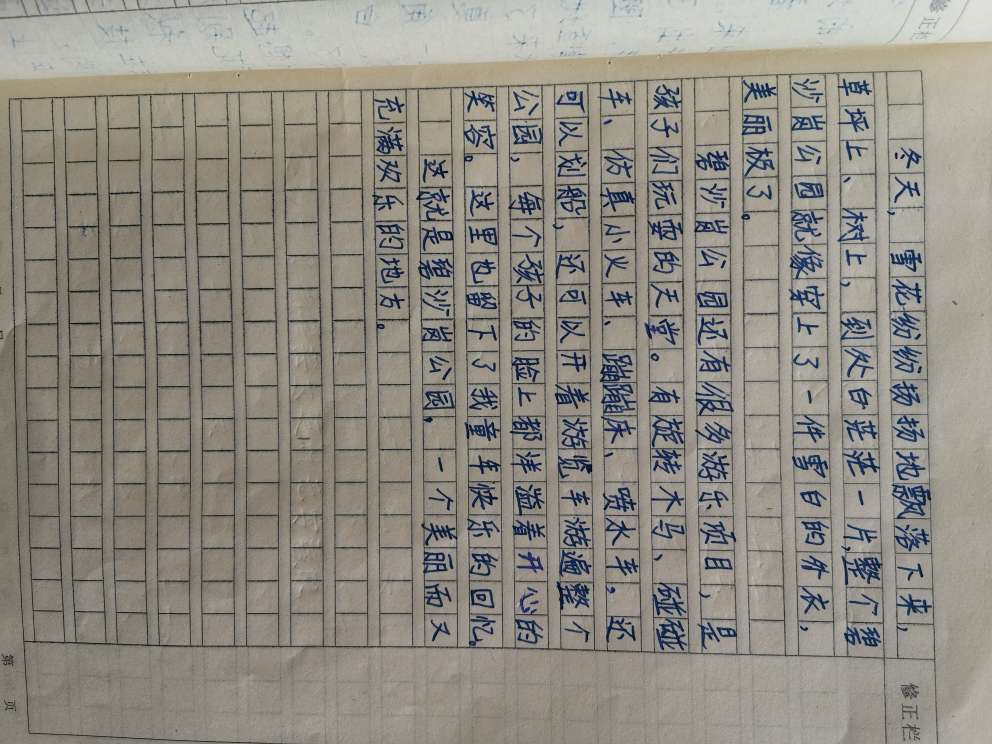 修正栏
冬天，雪花纷纷扬扬地飘落下来，
草坪上、树上，到处白茫茫一片，整个碧
沙岗公园就像穿上了一件雪白的外衣，
美丽极了。
碧沙岗公园还有很多游乐项目，是
孩子们玩耍的天堂。有旋转木马、碰碰
车、仿真小火车、蹦蹦床、喷水车。还
可以划船，还可以开着游览车游遍整个
公园，每个孩子的脸上都洋溢着开心的
笑容。这里也留下了我童年快乐的回忆。
这就是碧沙岗公园，一个美丽而又
充满欢乐的地方。
修正栏
第 页